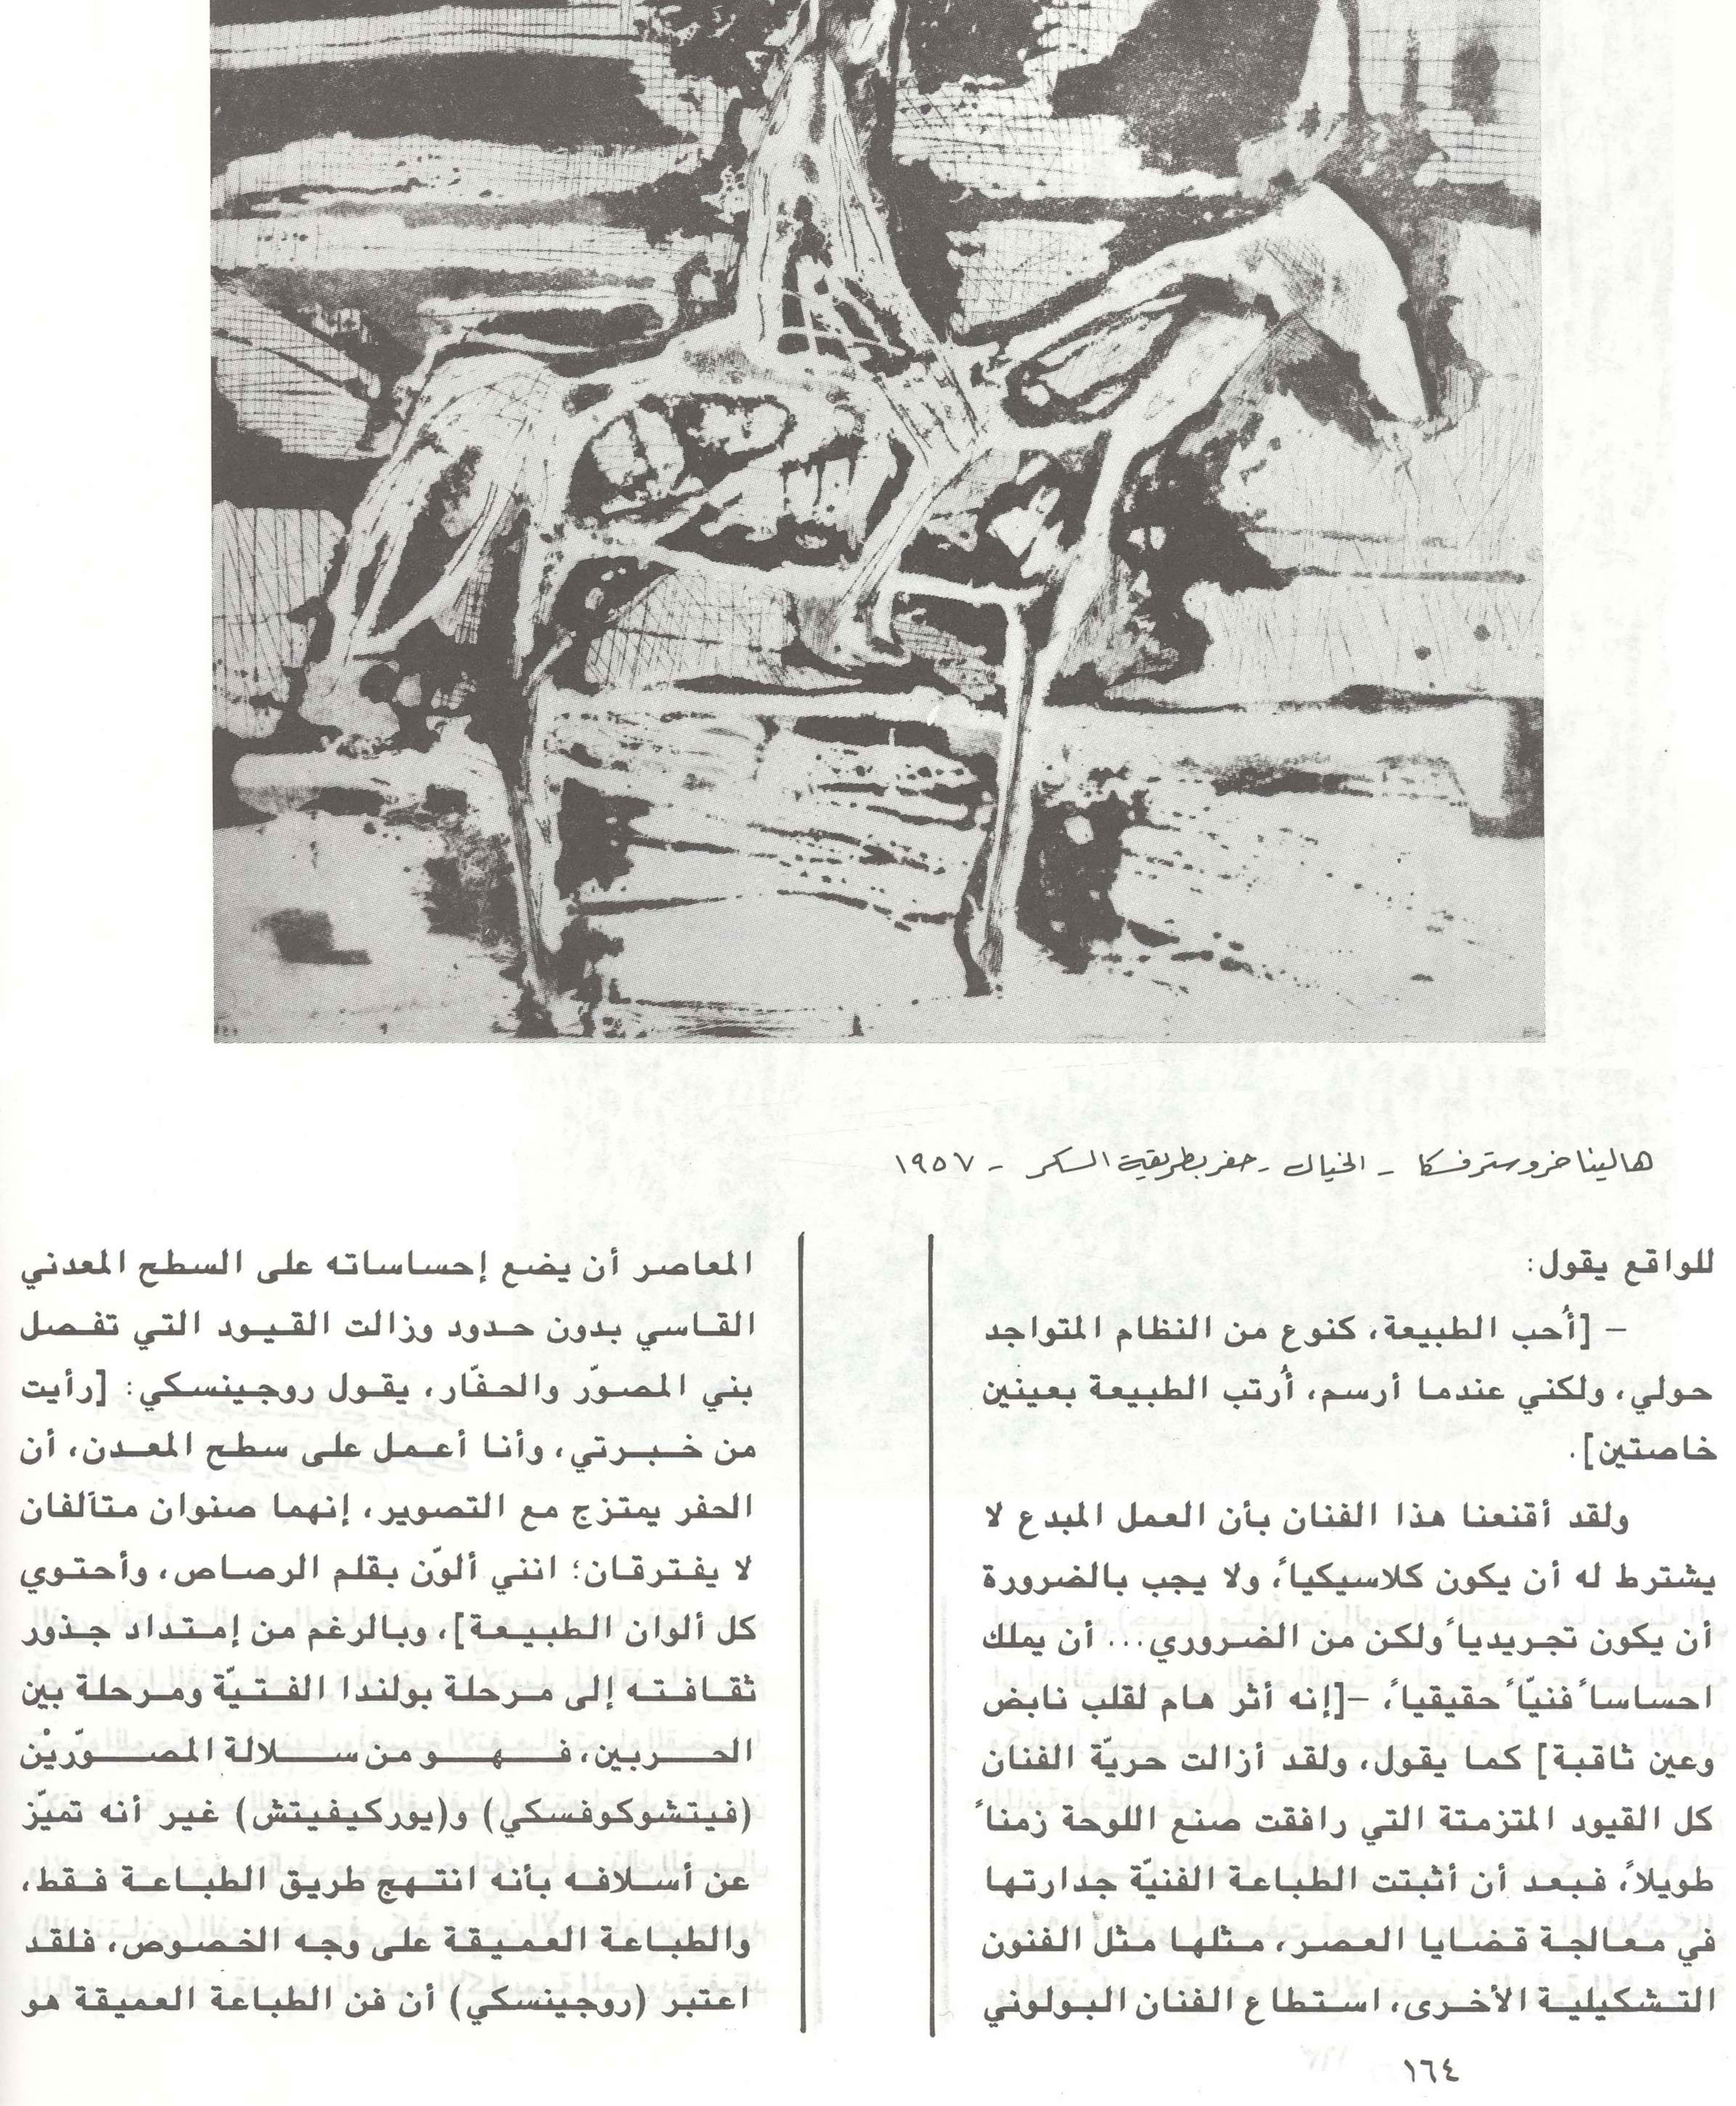 هالينا خروسترفسكا - الخيال - حفر بطريقة السكر - ١٩٥٧
للواقع يقول:
– [أُحب الطبيعة، كنوع من النظام المتواجد
حولي، ولكني عندما أرسم، أُرتب الطبيعة بعينين
خاصتين].
ولقد أقنعنا هذا الفنان بأن العمل المبدع لا
يشترط له أن يكون كلاسيكياً، ولا يجب بالضرورة
أن يكون تجريدياً ولكن من الضروري... أن يملك
احساساً فنيّاً حقيقياً، –[إنه أثر هام لقلب نابض
وعين ثاقبة] كما يقول، ولقد أزالت حريّة الفنان
كل القيود المتزمتة التي رافقت صنع اللوحة زمناً
طويلاً، فبعد أن أثبتت الطباعة الفنيّة جدارتها
في معالجة قضايا العصر، مثلها مثل الفنون
التشكيلية الأخرى، استطاع الفنان البولوني
المعاصر أن يضع إحساساته على السطح المعدني
القاسي بدون حدود وزالت القيود التي تفصل
بني المصوّر والحفّار، يقول روجينسكي: [رأيت
من خبرتي، وأنا أعمل على سطح المعدن، أن
الحفر يمتزج مع التصوير، إنهما صنوان متآلفان
لا يفترقان؛ انني ألوّن بقلم الرصاص، وأحتوي
كل ألوان الطبيعة]، وبالرغم من إمتداد جذور
ثقافته إلى مرحلة بولندا الفتيّة ومرحلة بين
الحربين، فهو من سلالة المصوّريْن
(فيتشوكوفسكي) و(يوركيفيتش) غير أنه تميّز
عن أسلافه بأنه انتهج طريق الطباعة فقط،
والطباعة العميقة على وجه الخصوص، فلقد
اعتبر (روجينسكي) أن فن الطباعة العميقة هو
١٦٤